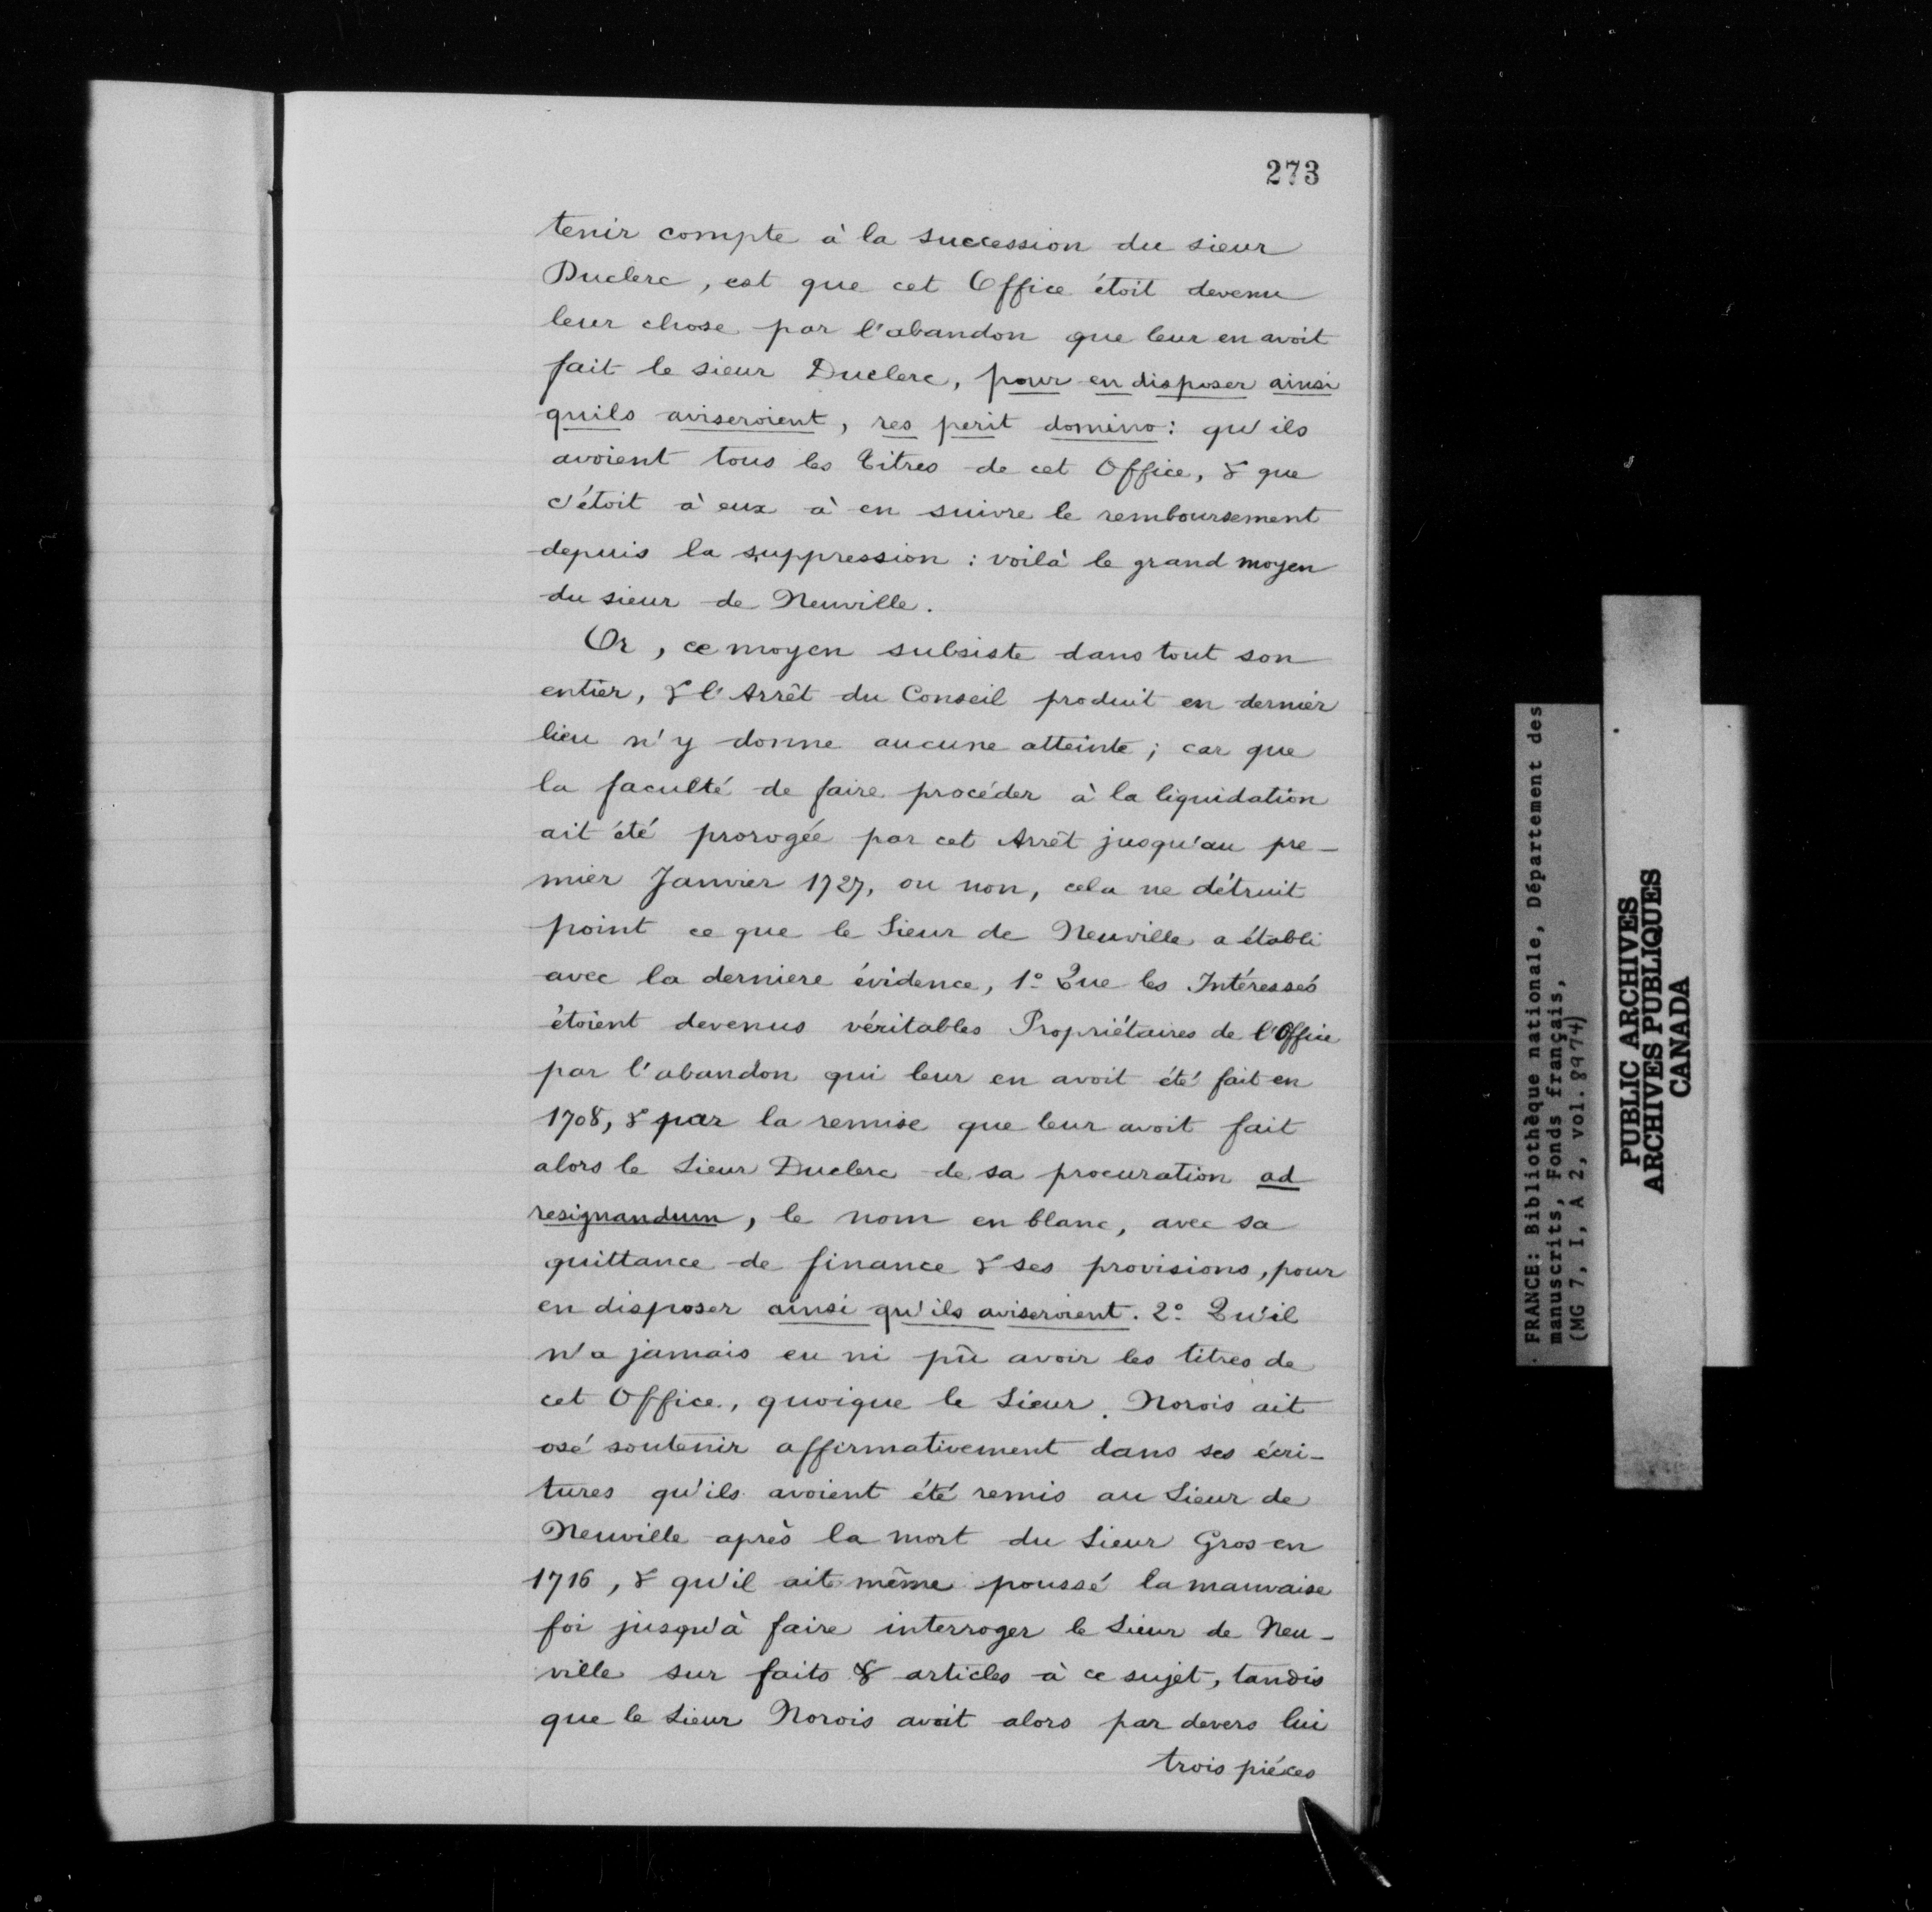 273
tenir compte à la succession du sieur
Duclerc, est que cet Office étoit devenu
leur chose par l'abandon que leur en avoit
fait le sieur Duclerc, pour en disposer ainsi
quils aviseroient, res perit domino: qu'ils
avoient tous les titres de cet Office, & que
c'étoit à eux à en suivre le remboursement
depuis la suppression : voilà le grand moyen
du sieur de Neuville.
Or, ce moyen subsiste dans tout son
entier, & l'Arrêt du Conseil produit en dernier
lieu n'y donne aucune atteinte ; car que
la faculté de faire procéder à la liquidation
ait été prorogée par cet Arrêt jusqu'au pre-
mier Janvier 1727, ou non, cela ne détruit
point ce que le Sieur de Neuville a établi
avec la derniere évidence, 1º Que les Intéressés
étoient devenus véritables Propriétaires de l'Office
par l'abandon qui leur en avoit été fait en
1708, & par la remise que leur avoit fait
alors le Sieur Duclerc de sa procuration ad
resignandum, le nom en blanc, avec sa
quittance de finance & ses provisions, pour
en disposer ainsi qu'ils aviseroient. 2º Qu'il
n'a jamais eu ni pû avoir les titres de
cet Office, quoique le Sieur Norois ait
osé soutenir affirmativement dans ses écri-
tures qu'ils avoient été remis au Sieur de
Neuville après la mort du Sieur Gros en
1716, & qu'il ait même poussé la mauvaise
foi jusqu'à faire interroger le Sieur de Neu-
ville sur faits & articles à ce sujet, tandis
que le Sieur Norois avoit alors par devers lui
trois piéces
FRANCE: Bibliothèque nationale, Département des
manuscrits, Fonds français,
(MG 7, I, A 2, vol. 8974)
PUBLIC ARCHIVES
ARCHIVES PUBLIQUES
CANADA